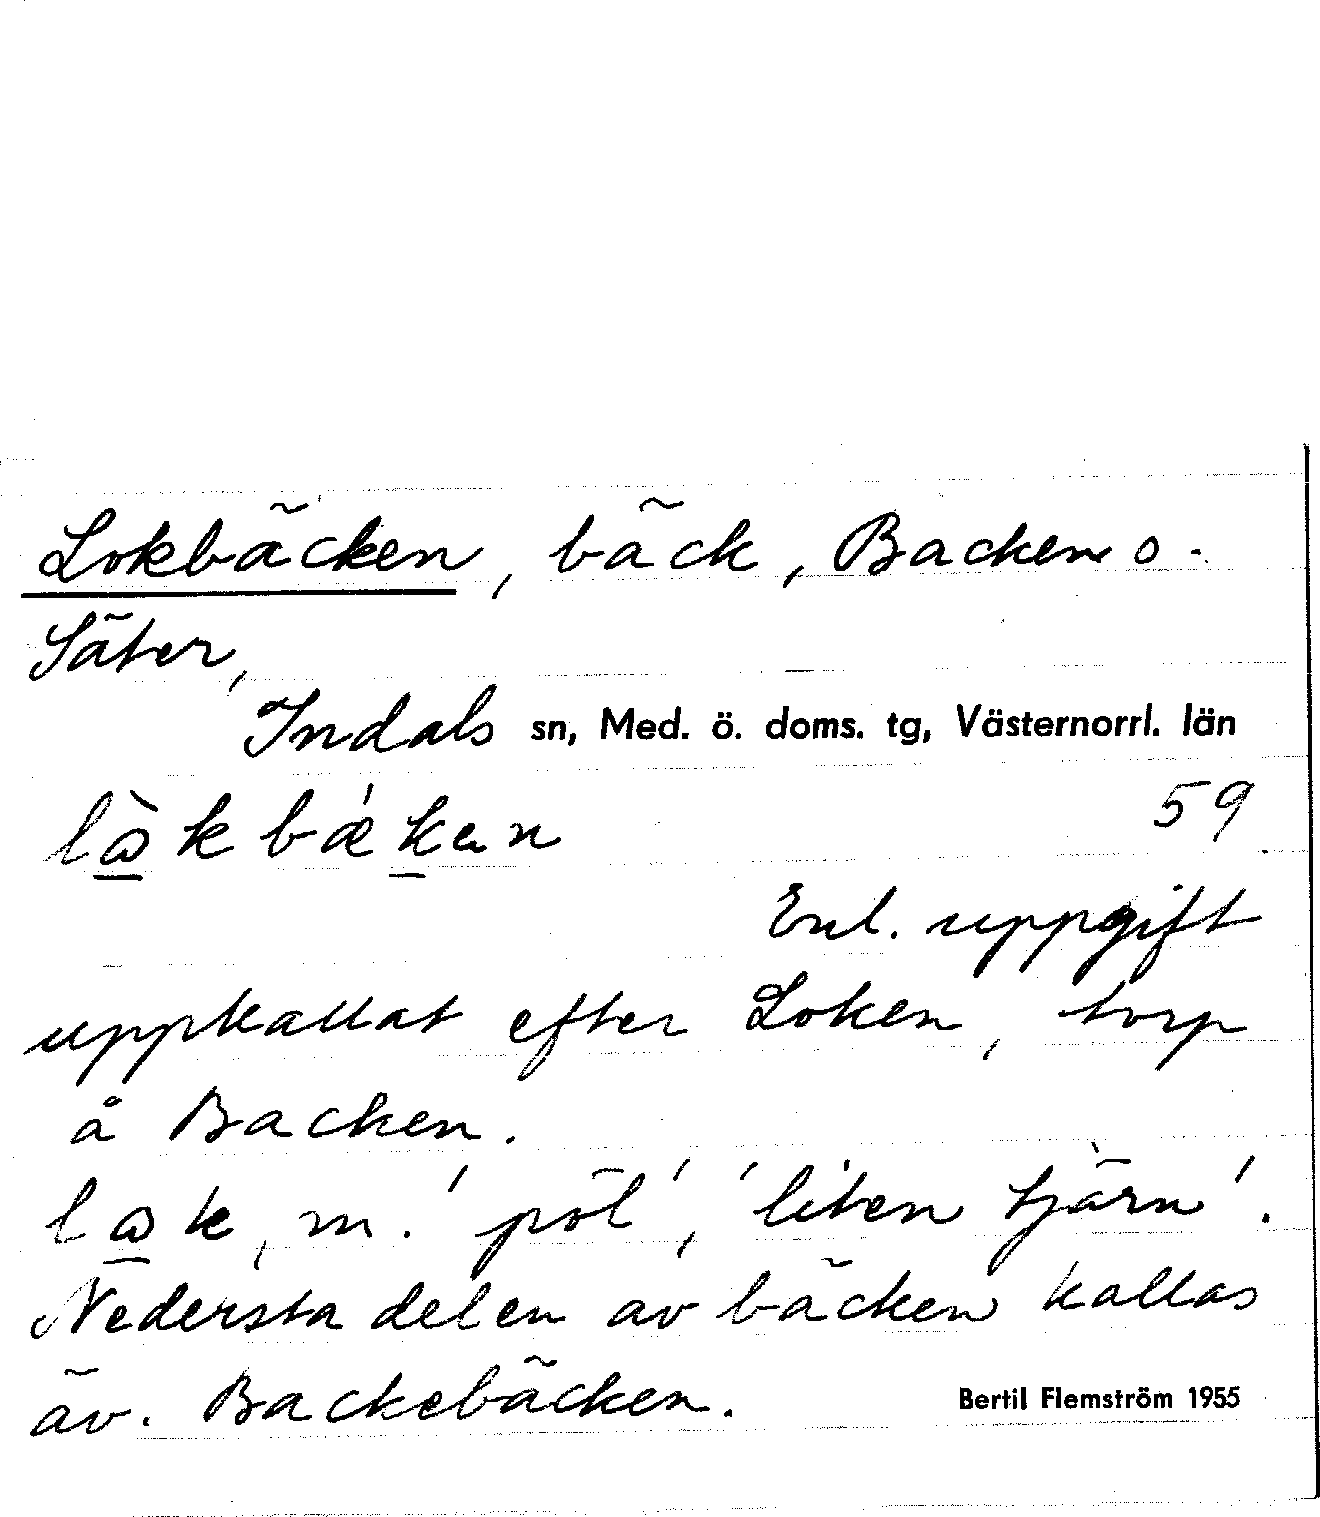 Lokbäcken, bäck, Backen o.
Säter,
Indals sn, Med. ö. doms. tg, Västernorrl. län
59
Enl. uppgift
uppkallat efter Loken, torp
å Backen.
m. 'pöl', 'liten tjärn'.
Nedersta delen av bäcken kallas
äv. Backebäcken.
Bertil Flemström 1955